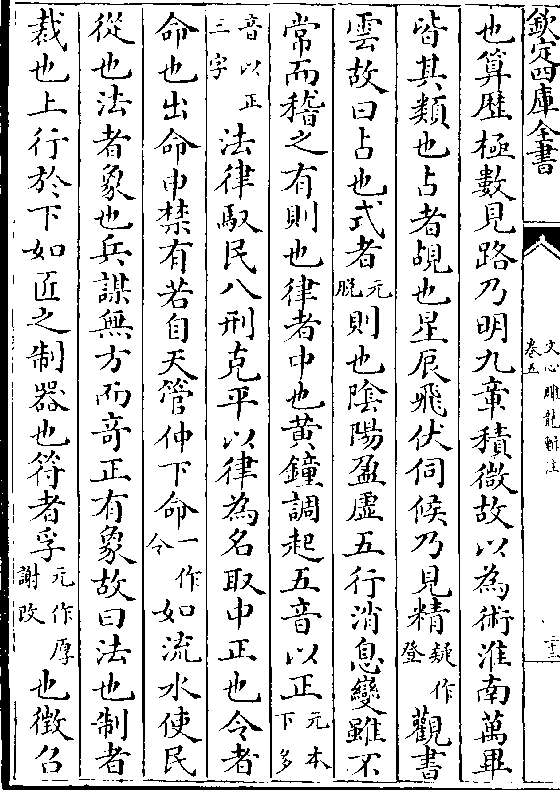 欽定四庫全書
文心雕龍輯注
卷五
二十三
也算歴極數見路乃明九章積微故以為術淮南萬畢
皆其類也占者覘也星辰飛伏伺候乃見精疑作登觀書
雲故曰占也式者元脫則也陰陽盈虛五行消息變雖不
常而稽之有則也律者中也黃鐘調起五音以正元本下多
音以正三字法律馭民八刑克平以律為名取中正也令者
命也出命申禁有若自天管仲下命一作令如流水使民
從也法者象也兵謀無方而竒正有象故曰法也制者
裁也上行於下如匠之制器也符者孚元作厚謝改也徵召